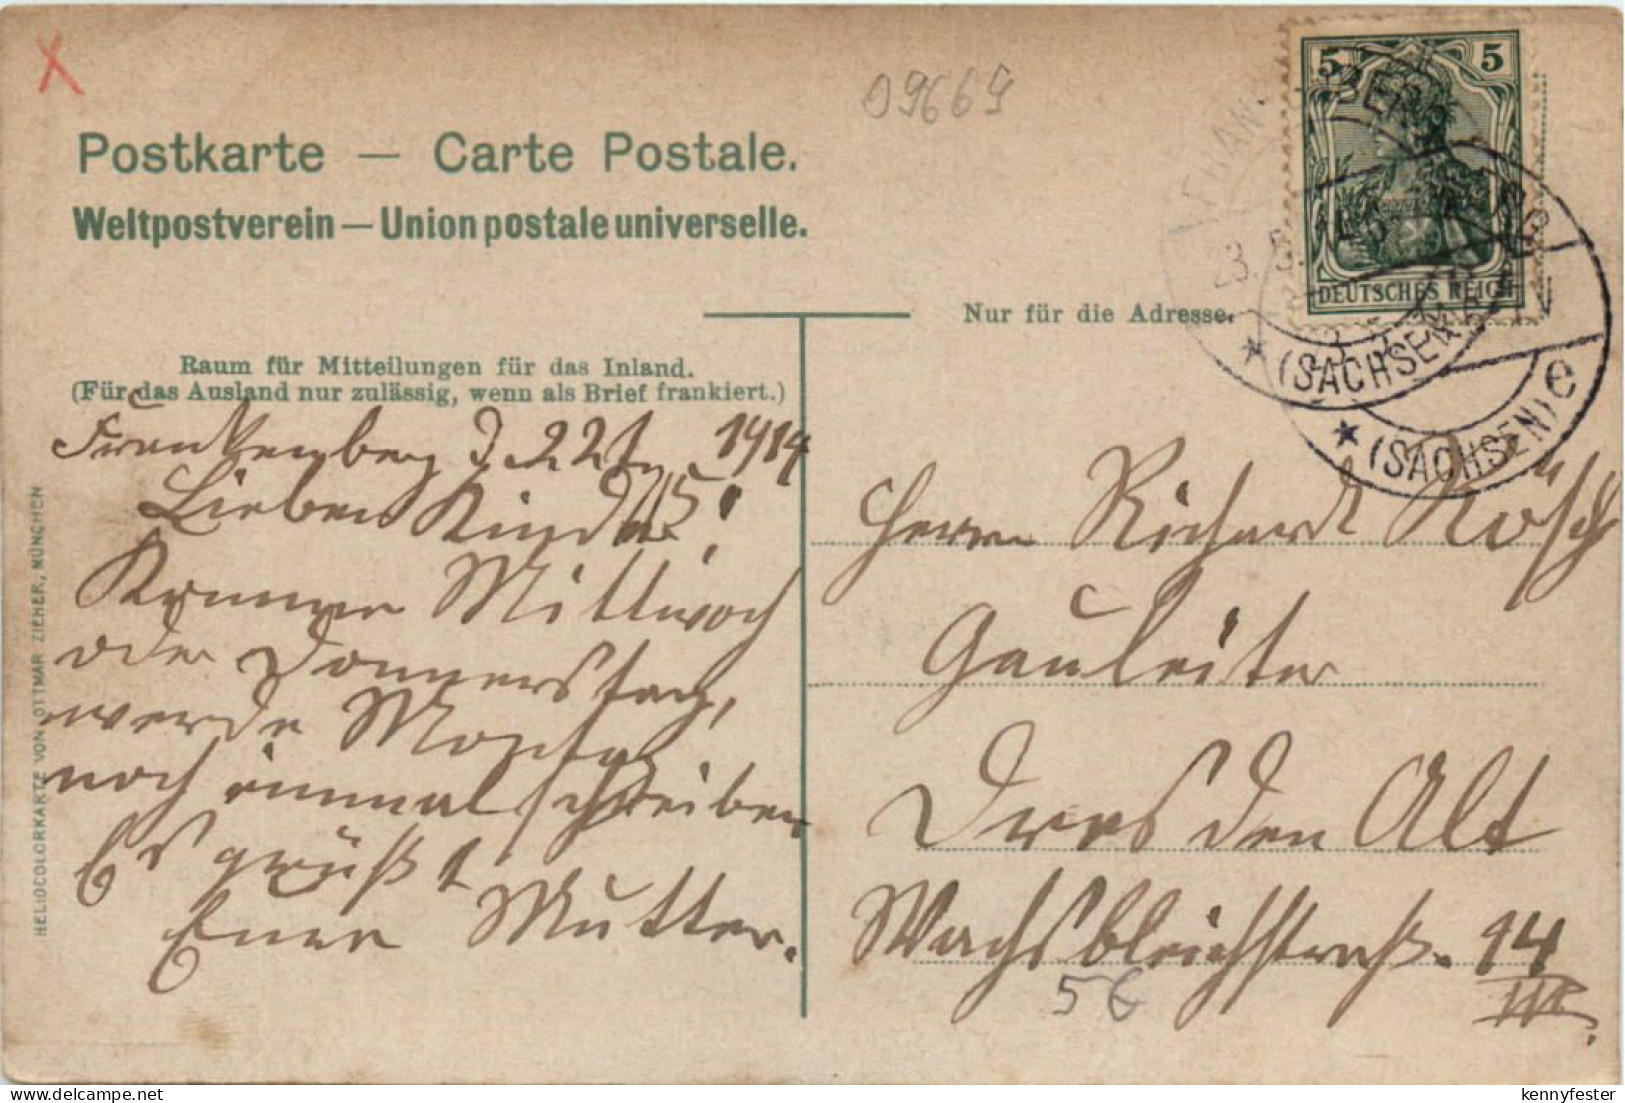 09669
Postkarte — Carte Postale.
Weltpostverein — Union postale universelle.
5 5
DEUTSCHES REICH
(SACHSEN)
(SACHSEN) e
Nur für die Adresse.
Raum für Mitteilungen für das Inland.
(Für das Ausland nur zulässig, wenn als Brief frankiert.)
Frankenberg d. 22 1914
Lieben Kinder!
Komme Mittwoch
oder Donnerstag,
werde Montag
noch einmal schreiben
Es grüßt
Eure Mutter.
Herrn Richard Rösch
Gauleiter
Dresden Alt
Wachsbleichstraß. 14
III.
5 €
HELIOCOLORKARTE VON OTTMAR ZIEHER, MÜNCHEN
kennyfester